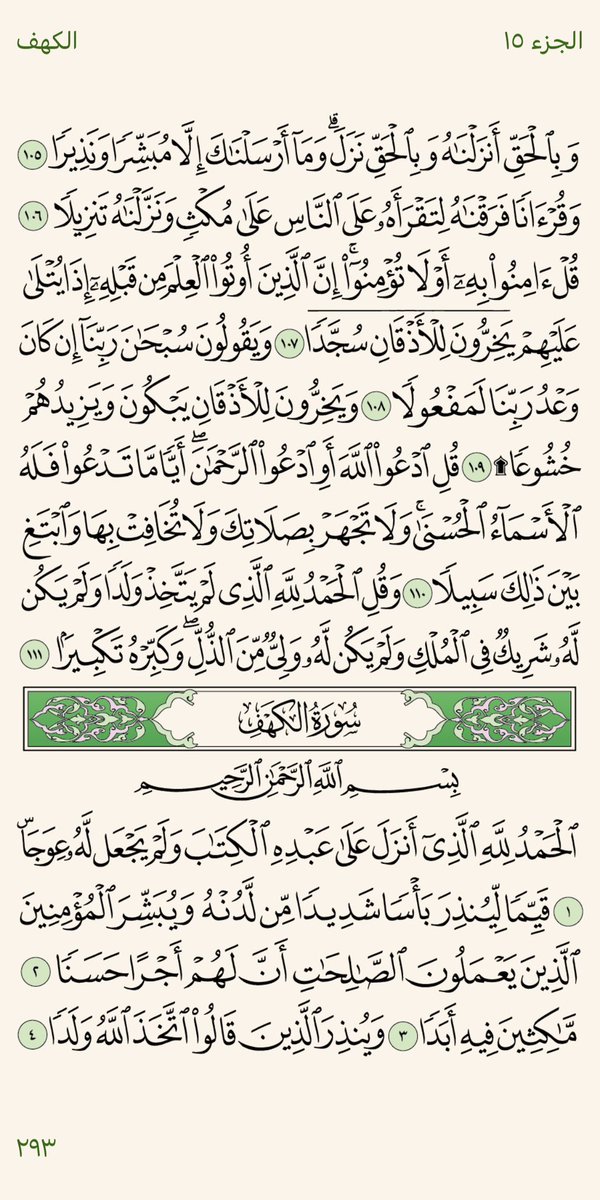 الجزء ١٥
الكهف
وَبِٱلْحَقِّ أَنزَلْنَٰهُ وَبِٱلْحَقِّ نَزَلَ ۗ وَمَآ أَرْسَلْنَٰكَ إِلَّا مُبَشِّرًا وَنَذِيرًا ١٠٥
وَقُرْءَانًا فَرَقْنَٰهُ لِتَقْرَأَهُۥ عَلَى ٱلنَّاسِ عَلَىٰ مُكْثٍ وَنَزَّلْنَٰهُ تَنزِيلًا ١٠٦
قُلْ ءَامِنُوا۟ بِهِۦٓ أَوْ لَا تُؤْمِنُوٓا۟ ۚ إِنَّ ٱلَّذِينَ أُوتُوا۟ ٱلْعِلْمَ مِن قَبْلِهِۦٓ إِذَا يُتْلَىٰ
عَلَيْهِمْ يَخِرُّونَ لِلْأَذْقَانِ سُجَّدًا ١٠٧ وَيَقُولُونَ سُبْحَٰنَ رَبِّنَآ إِن كَانَ
وَعْدُ رَبِّنَا لَمَفْعُولًا ١٠٨ وَيَخِرُّونَ لِلْأَذْقَانِ يَبْكُونَ وَيَزِيدُهُمْ
خُشُوعًا ۩ ١٠٩ قُلِ ٱدْعُوا۟ ٱللَّهَ أَوِ ٱدْعُوا۟ ٱلرَّحْمَٰنَ ۖ أَيًّا مَّا تَدْعُوا۟ فَلَهُ
ٱلْأَسْمَآءُ ٱلْحُسْنَىٰ ۚ وَلَا تَجْهَرْ بِصَلَاتِكَ وَلَا تُخَافِتْ بِهَا وَٱبْتَغِ
بَيْنَ ذَٰلِكَ سَبِيلًا ١١٠ وَقُلِ ٱلْحَمْدُ لِلَّهِ ٱلَّذِى لَمْ يَتَّخِذْ وَلَدًا وَلَمْ يَكُن
لَّهُۥ شَرِيكٌ فِى ٱلْمُلْكِ وَلَمْ يَكُن لَّهُۥ وَلِىٌّ مِّنَ ٱلذُّلِّ ۖ وَكَبِّرْهُ تَكْبِيرًۢا ١١١
سُورَةُ الكَهْفِ
بِسْمِ ٱللَّهِ ٱلرَّحْمَٰنِ ٱلرَّحِيمِ
ٱلْحَمْدُ لِلَّهِ ٱلَّذِىٓ أَنزَلَ عَلَىٰ عَبْدِهِ ٱلْكِتَٰبَ وَلَمْ يَجْعَل لَّهُۥ عِوَجَاۜ
١ قَيِّمًا لِّيُنذِرَ بَأْسًا شَدِيدًا مِّن لَّدُنْهُ وَيُبَشِّرَ ٱلْمُؤْمِنِينَ
ٱلَّذِينَ يَعْمَلُونَ ٱلصَّٰلِحَٰتِ أَنَّ لَهُمْ أَجْرًا حَسَنًا ٢
مَّٰكِثِينَ فِيهِ أَبَدًا ٣ وَيُنذِرَ ٱلَّذِينَ قَالُوا۟ ٱتَّخَذَ ٱللَّهُ وَلَدًا ٤
٢٩٣